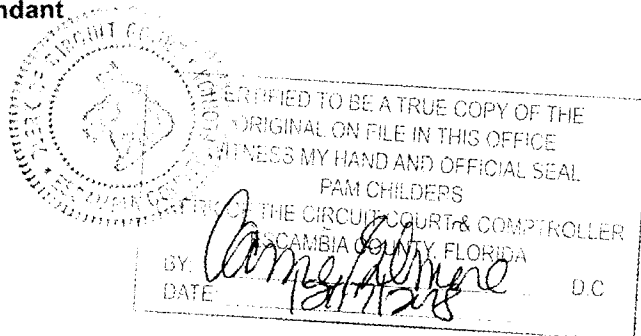 ndant
CLERK OF CIRCUIT COURT
ERTIFIED TO BE A TRUE COPY OF THE
ORIGINAL ON FILE IN THIS OFFICE
WITNESS MY HAND AND OFFICIAL SEAL
PAM CHILDERS
THE CIRCUIT COURT & COMPTROLLER
ESCAMBIA COUNTY, FLORIDA
BY: D.C
DATE